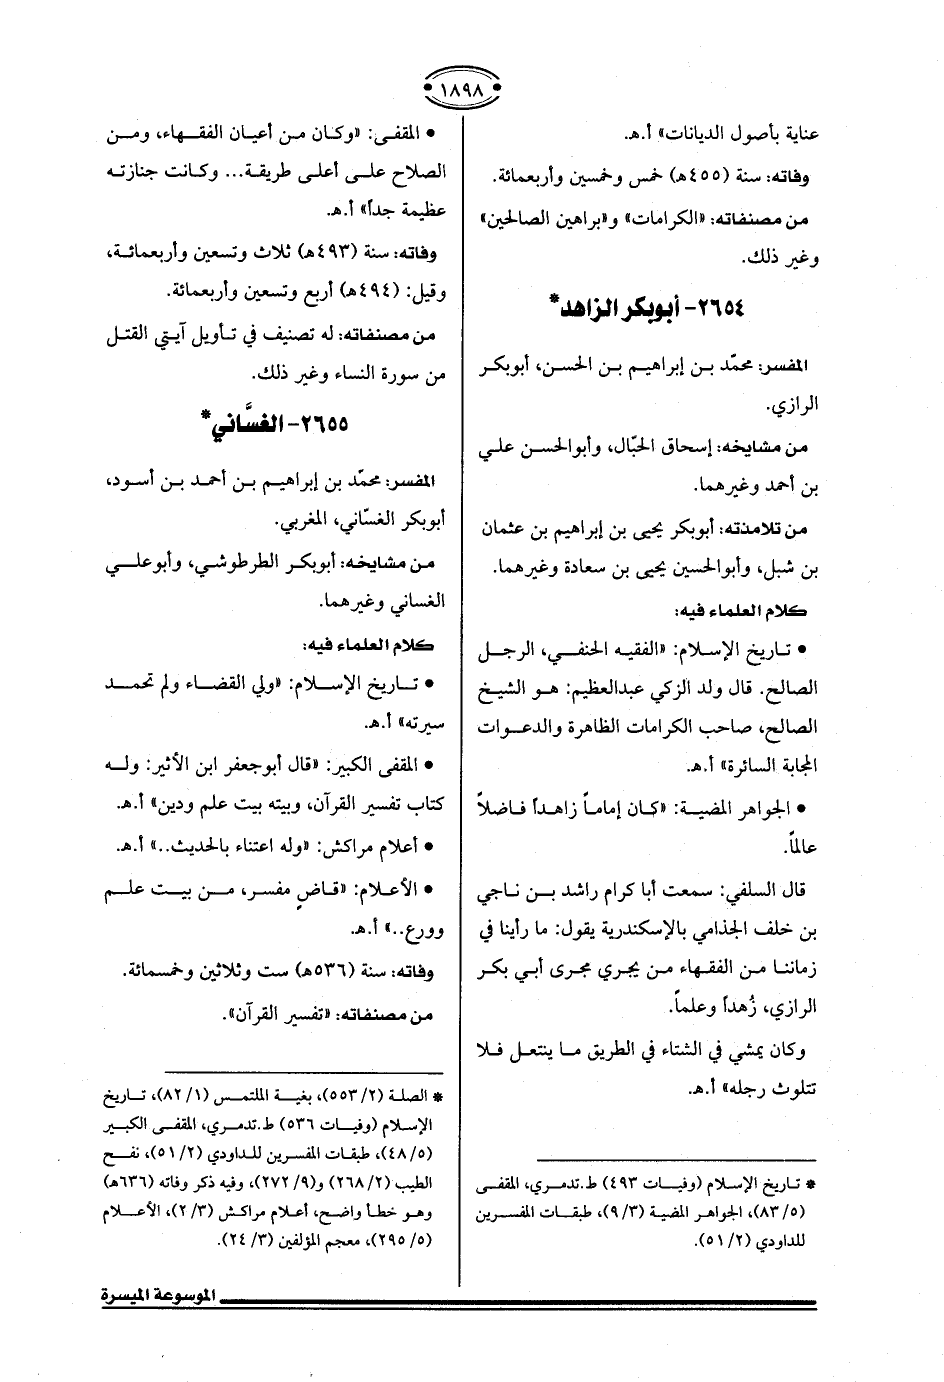 ١٨٩٨
عناية بأصول الديانات» أ.هـ.
وفاته: سنة (٤٥٥هـ) خمس وخمسين وأربعمائة.
من مصنفاته: «الكرامات» و«براهين الصالحين»
وغير ذلك.
٢٦٥٤- أبوبكر الزاهد*
المفسر: محمّد بن إبراهيم بن الحسن، أبوبكر
الرازي.
من مشايخه: إسحاق الحبّال، وأبوالحسن علي
بن أحمد وغيرهما.
من تلامذته: أبوبكر يحيى بن إبراهيم بن عثمان
بن شبل، وأبوالحسين يحيى بن سعادة وغيرهما.
كلام العلماء فيه:
• تاريخ الإسلام: «الفقيه الحنفي، الرجل
الصالح. قال ولد الزكي عبدالعظيم: هو الشيخ
الصالح، صاحب الكرامات الظاهرة والدعوات
المجابة السائرة» أ.هـ.
• الجواهر المضية: «كان إماماً زاهداً فاضلاً
عالماً.
قال السلفي: سمعت أبا كرام راشد بن ناجي
بن خلف الجذامي بالإسكندرية يقول: ما رأينا في
زماننا من الفقهاء من يجري مجرى أبي بكر
الرازي، زُهداً وعلماً.
وكان يمشي في الشتاء في الطريق ما ينتعل فلا
تتلوث رجله» أ.هـ.
* تاريخ الإسلام (وفيات ٤٩٣) ط.تدمري، المقفى
(٨٣/٥)، الجواهر المضية (٩/٣)، طبقات المفسرين
للداودي (٥١/٢).
• المقفى: «وكان من أعيان الفقهاء، ومن
الصلاح على أعلى طريقة... وكانت جنازته
عظيمة جداً» أ.هـ.
وفاته: سنة (٤٩٣هـ) ثلاث وتسعين وأربعمائة،
وقيل: (٤٩٤هـ) أربع وتسعين وأربعمائة.
من مصنفاته: له تصنيف في تأويل آيتي القتل
من سورة النساء وغير ذلك.
٢٦٥٥- الغسَّاني*
المفسر: محمّد بن إبراهيم بن أحمد بن أسود،
أبوبكر الغسّاني، المغربي.
من مشايخه: أبوبكر الطرطوشي، وأبوعلي
الغساني وغيرهما.
كلام العلماء فيه:
• تاريخ الإسلام: «ولي القضاء ولم تحمد
سيرته» أ.هـ.
• المقفى الكبير: «قال أبوجعفر ابن الأثير: وله
كتاب تفسير القرآن، وبيته بيت علم ودين» أ.هـ.
• أعلام مراكش: «وله اعتناء بالحديث..» أ.هـ.
• الأعلام: «قاضٍ مفسر، من بيت علم
وورع..» أ.هـ.
وفاته: سنة (٥٣٦هـ) ست وثلاثين وخمسمائة.
من مصنفاته: «تفسير القرآن».
* الصلة (٥٥٣/٢)، بغية الملتمس (٨٢/١)، تاريخ
الإسلام (وفيات ٥٣٦) ط.تدمري، المقفى الكبير
(٤٨/٥)، طبقات المفسرين للداودي (٥١/٢)، نفح
الطيب (٢٦٨/٢) و(٢٧٢/٩)، وفيه ذكر وفاته (٦٣٦هـ)
وهو خطأ واضح، أعلام مراكش (٢/٣)، الأعلام
(٢٩٥/٥)، معجم المؤلفين (٢٤/٣).
الموسوعة الميسرة